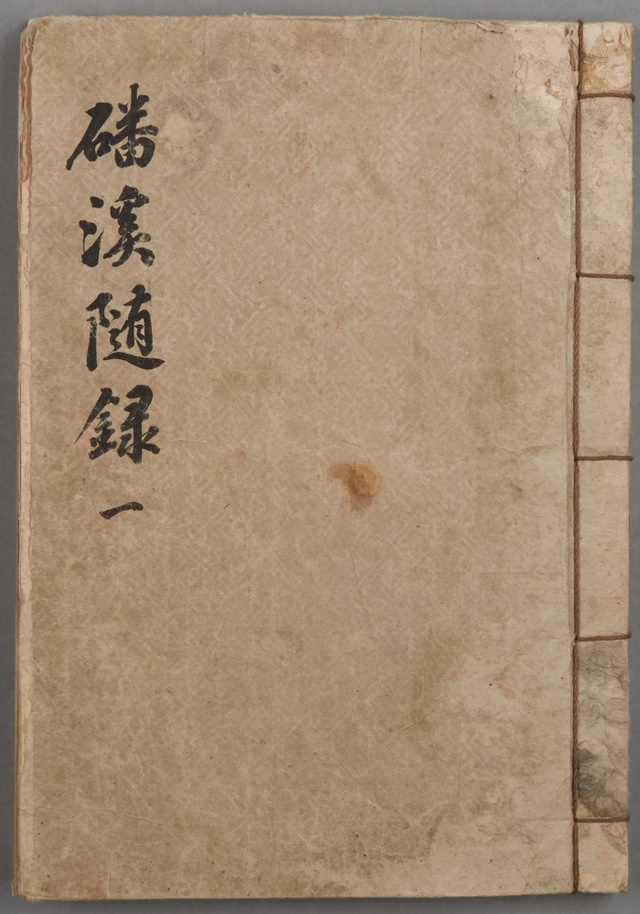 磻溪隨録一